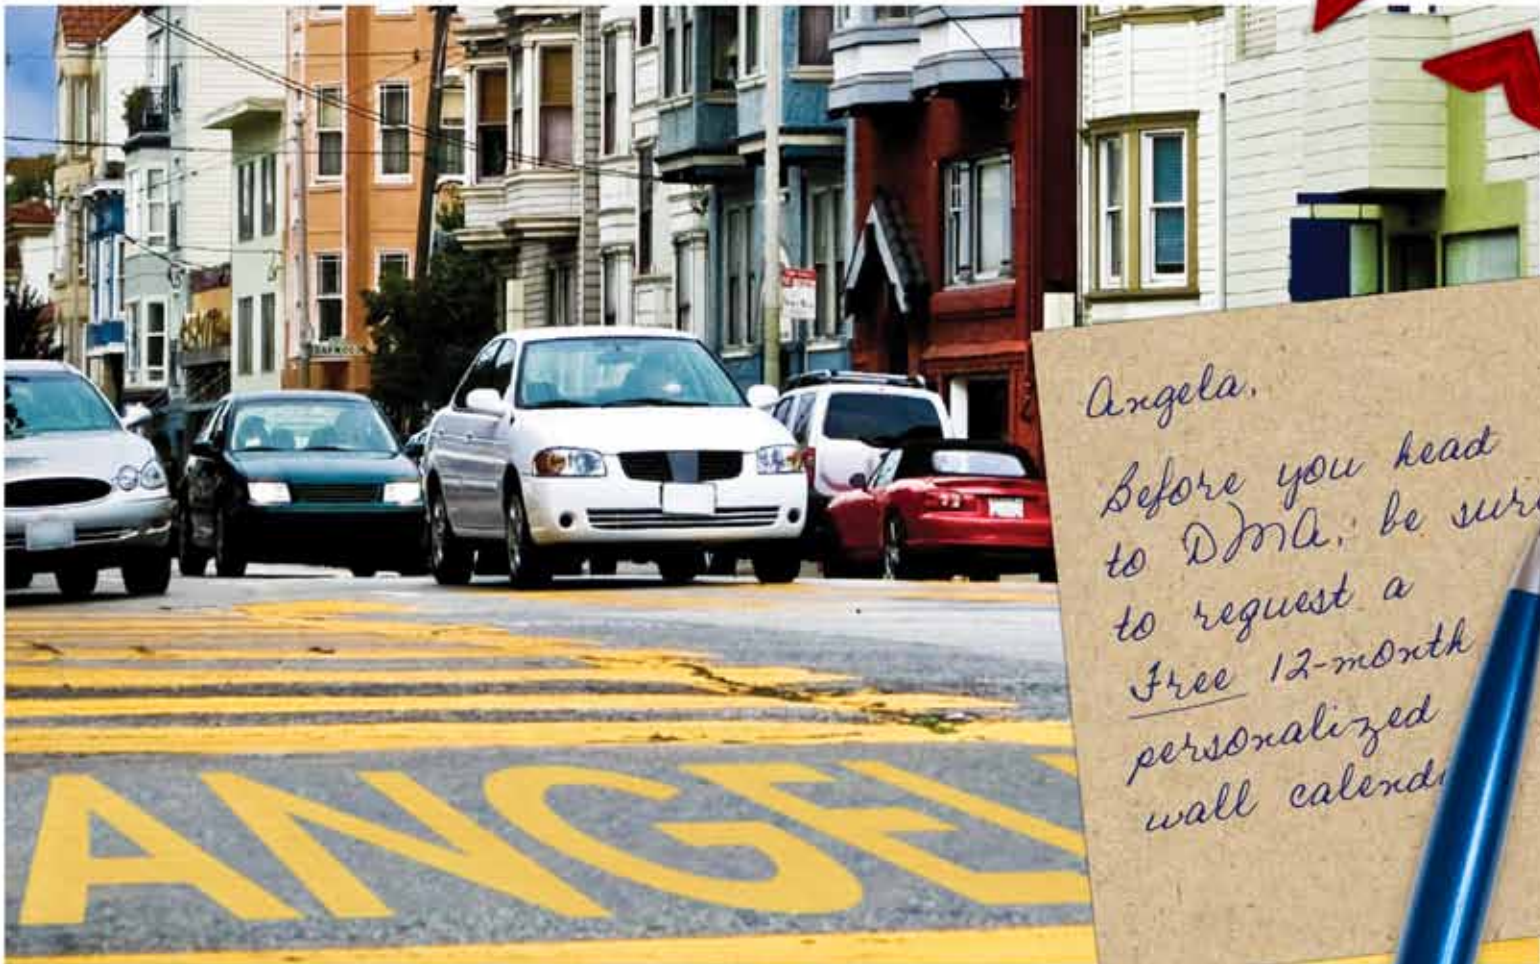 ANGEL
Angela,
Before you head
to DMA, be sur
to request a
Free 12-month
personalized
wall calend